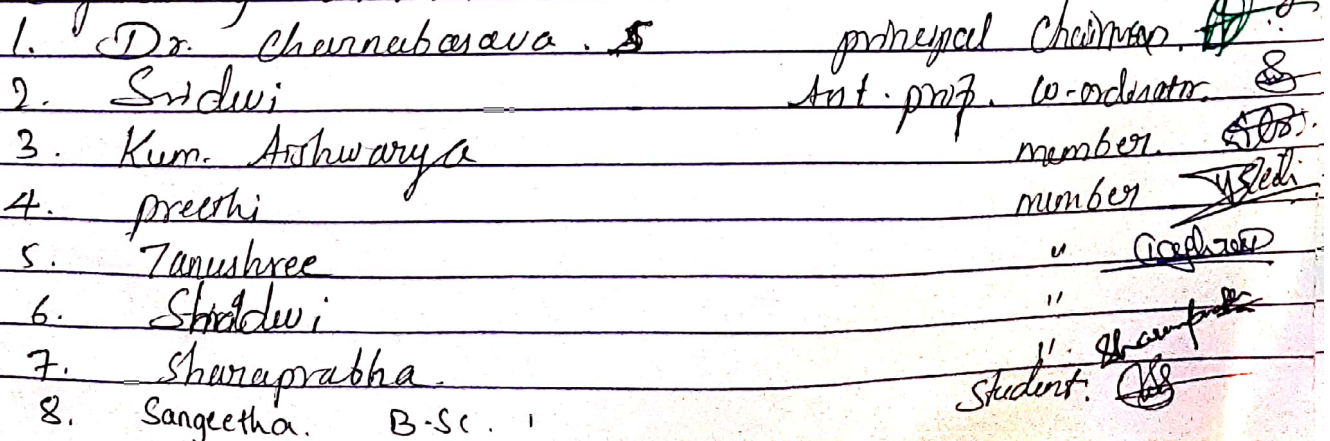 1. Dr. Channabasava. S principal Chairman.
2. Sridevi Ast. prof. co-ordinator.
3. Kum. Aishwarya member.
4. preethi member
5. Tanushree "
6. Shridevi "
7. Sharaprabha. "
8. Sangeetha. B.Sc. 1 Student: